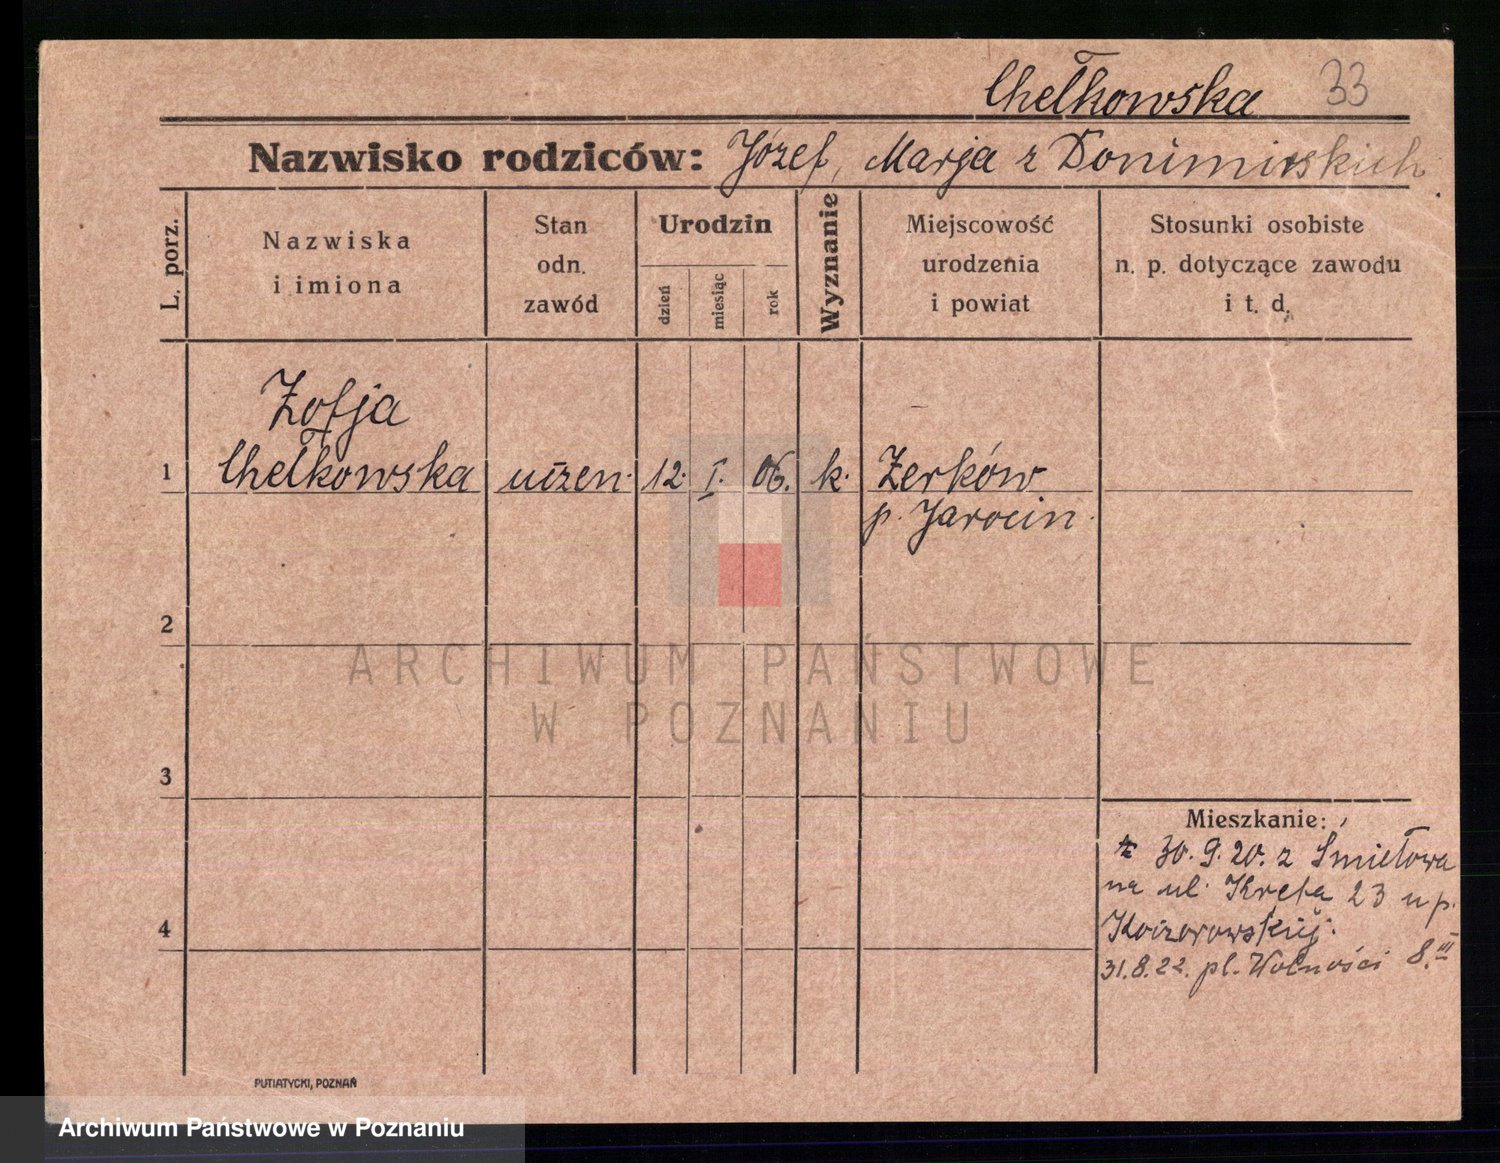 Chełkowska 33
Nazwisko rodziców: Józef, Marja z Donimirskich
L. porz.
Nazwiska
i imiona
Stan
odn.
zawód
Urodzin
dzień
miesiąc
rok
Wyznanie
Miejscowość
urodzenia
i powiat
Stosunki osobiste
n. p. dotyczące zawodu
i t. d.
Zofja
1 Chełkowska uczen. 12. I. 06. k. Żerków
p. Jarocin.
2
ARCHIWUM PAŃSTWOWE
W POZNANIU
3
Mieszkanie:
30.9.20. z Śmiełowa
na ul. Kręta 23 u p.
4
31.8.22. pl. Wolności 8.III
PUTIATYCKI, POZNAŃ
Archiwum Państwowe w Poznaniu